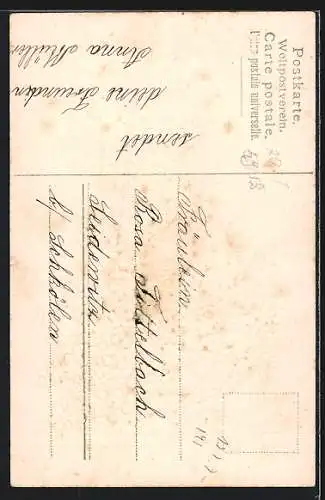 Postkarte.
Weltpostverein.
Carte postale.
Union postale universelle.
sendet
deine Freundin
Anna Müller
Fräulein
Rosa Tittelbach
b/ Schkölen